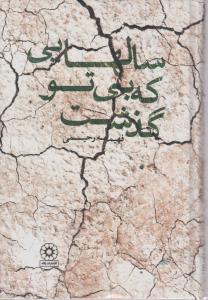 سالهایی
که بی تو
گذشت